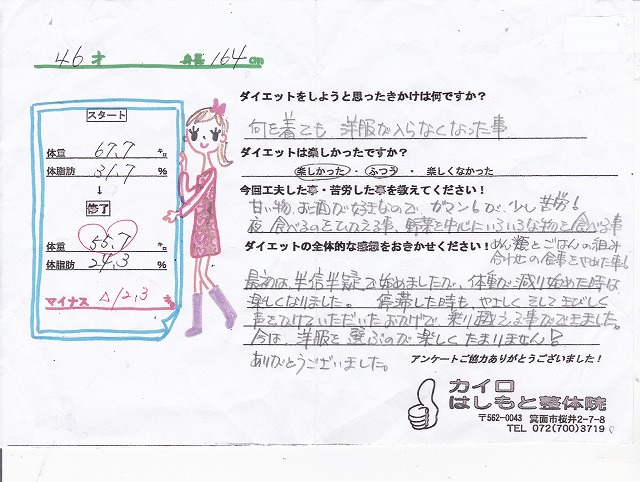 46才 身長 164cm
スタート
体重 67.7 キロ
体脂肪 31.7 %
↓
修了
体重 55.7 キロ
体脂肪 24.3 %
マイナス △12.3 キロ
ダイエットをしようと思ったきかけは何ですか？
何を着ても 洋服が入らなくなった事
ダイエットは楽しかったですか？
楽しかった・ふつう・楽しくなかった
今回工夫した事・苦労した事を教えてください！
甘い物、お酒が好きなので、ガマンしが、少し苦労！
夜食べるのをひかえる事、野菜を中心にいろいろな物を食べる事
めん類とごはんの組み
合わせの食事をやめた事！
ダイエットの全体的な感想をおきかせください！
最初は、半信半疑で始めましたが、体重が減り始めた時は
楽しくなりました。 停滞した時も、やさしく そして きびしく
声をかけていただいたおかげで、乗り越える事ができました。
今は、洋服を選ぶのが楽しくたまりません！
ありがとうございました。
アンケートご協力ありがとうございました！
カイロ
はしもと整体院
〒562-0043 箕面市桜井2-7-8
TEL 072(700)3719